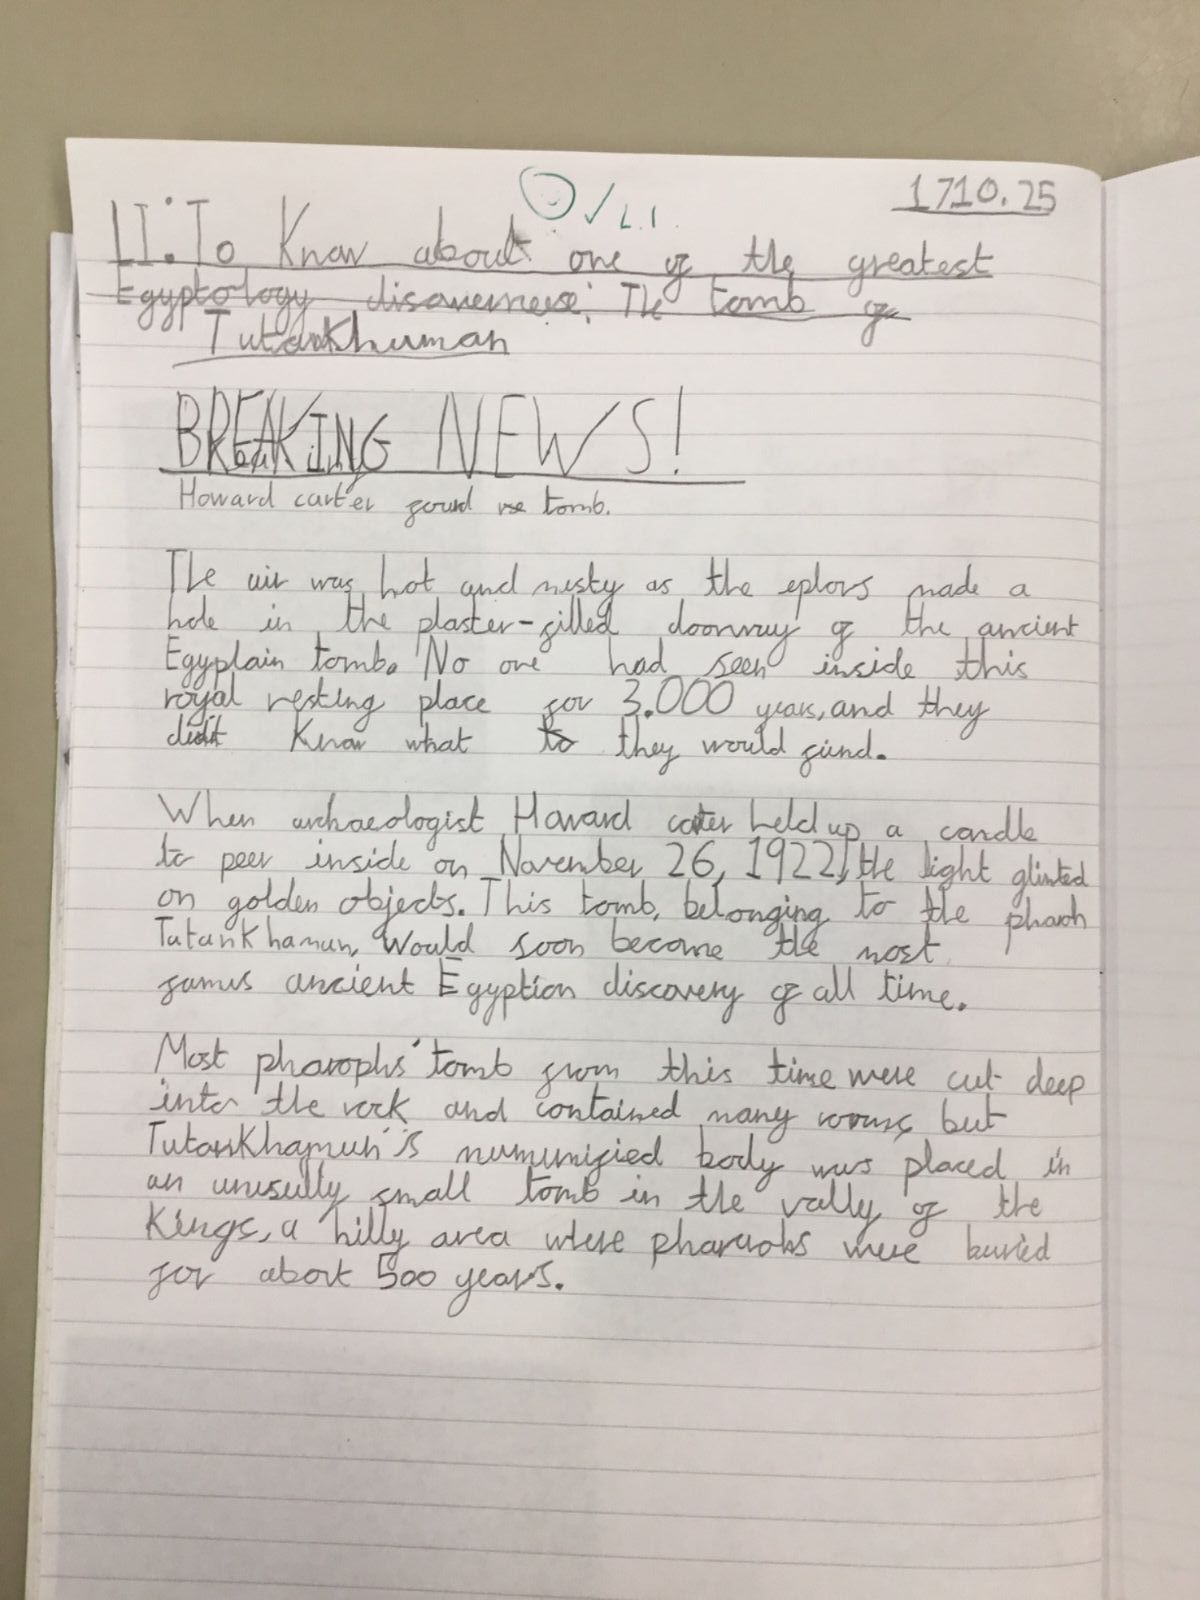 17.10.25
✓ L.I.
LI: To Know about one of the greatest
Egyptology discoveries: The tomb of
Tutankhuman
BREAKING NEWS!
Howard carter found tomb.
The air was hot and musty as the eplors made a
hole in the plaster-filled doorway of the ancient
Egyptain tomb. No one had seen inside this
royal resting place for 3.000 years, and they
didit Know what they would find.
When archaeologist Howard cater held up a candle
to peer inside on November 26, 1922, the light glinted
on golden objects. This tomb, belonging to the pharoh
TutanKhamun, would soon become the most
famus ancient Egyption discovery of all time.
Most pharophs' tomb from this time were cut deep
into the rock and contained many rooms, but
TutanKhamun's mumunified body was placed in
an unusully small tomb in the vally of the
Kings, a hilly area where pharaohs were buried
for about 500 years.